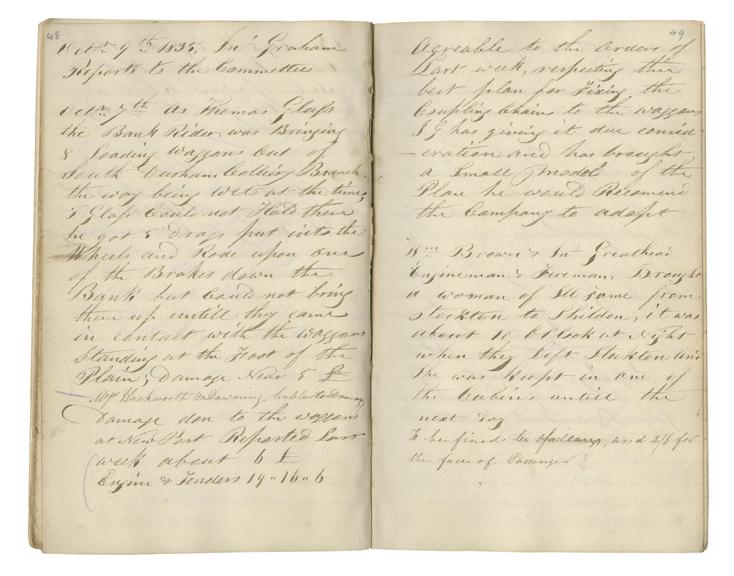 48
Octr 9th 1835, Jn° Graham
Reports to the Committee
Octr 7th As Thomas Glass
the Bank Rider, was Bringing
8 Loading Waggons out of
South Durham Colliery Branch
the way being wet at the time,
T Glass Could not Hold them
he got 5 Drags put into the
Wheels and Rode upon one
of the Brakes down the
Bank but Could not bring
them up untill they came
in contact with the waggons
Standing at the Foot of the
Plain; Damage Near 5 £
Messrs Hackworth & Downing liable to Damage
Damage don to the waggons
at New Port Reported Last
week about 6 £
Engine & Tenders 19 " 16 " 6
49
Agreable to the orders of
Last week, respecting the
best plan for Fixing the
Coupling Chains to the waggons
J G has giving it due consid
-eration and has brought
a Small model of the
Plan he would Recomend
the Company to adopt
Wm Brown & Jn° Greathead
Engineman & Fireman, Brought
a woman of Ill Fame from
Stockton to Shildon, it was
about 10 O Clock at Night
when they Left Stockton and
She was Kept in one of
the Cabins untill the
next day
To be fined ten shillings, and 2/6 for
the fares of Passenger